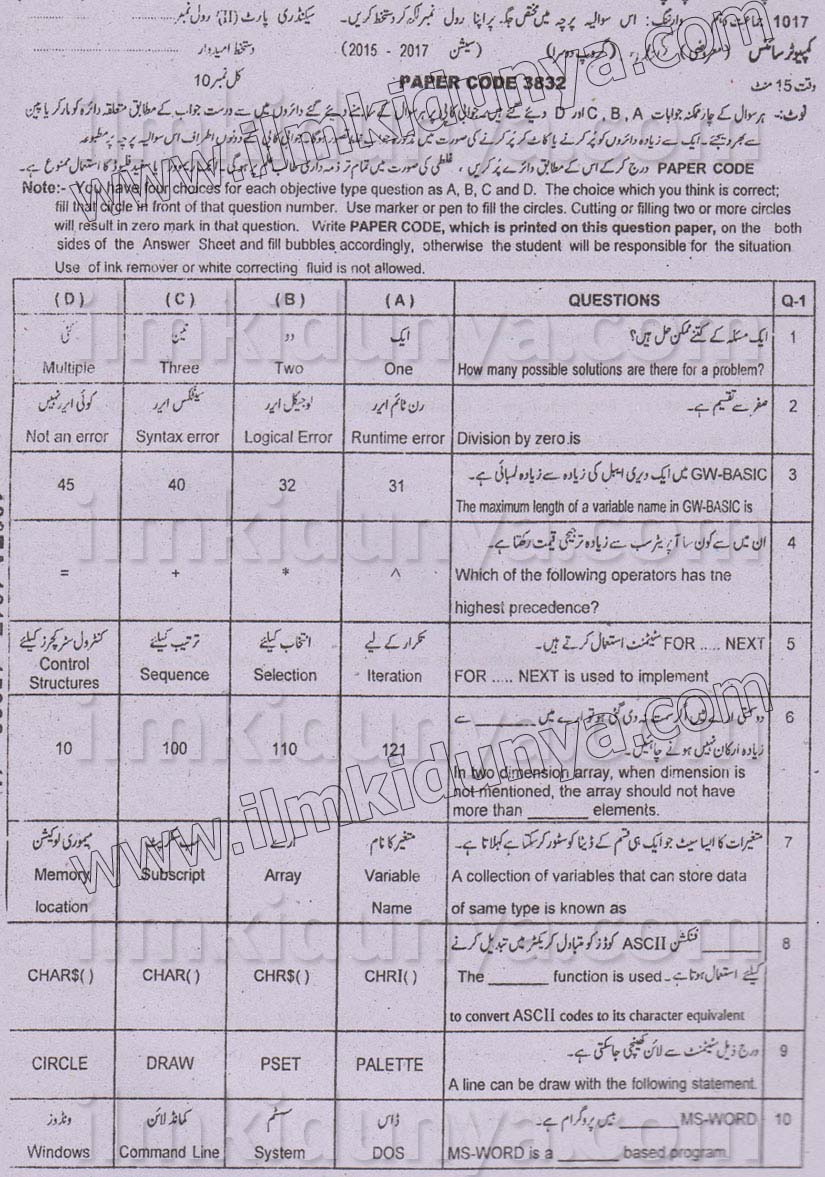 1017 وارننگ: اس سوالیہ پرچہ میں مختص جگہ پر اپنا رول نمبر لکھ کر دستخط کریں۔ سیکنڈری پارٹ (II) رول نمبر
کمپیوٹر سائنس (معروضی) (گروپ دوسرا) (سیشن 2017 - 2015) دستخط امیدوار
وقت 15 منٹ PAPER CODE 3832 کل نمبر 10
نوٹ:- ہر سوال کے چار ممکنہ جوابات A ,B ,C اور D دیئے گئے ہیں۔ جوابی کاپی پر ہر سوال کے سامنے دیئے گئے دائروں میں سے درست جواب کے مطابق متعلقہ دائرہ کو مارکر یا پین
سے بھر دیجئے۔ ایک سے زیادہ دائروں کو پُر کرنے یا کاٹ کر پُر کرنے کی صورت میں مذکورہ جواب غلط تصور ہوگا۔ جوابی کاپی کے دونوں اطراف اس سوالیہ پرچہ پر مطبوعہ
PAPER CODE درج کر کے اس کے مطابق دائرے پُر کریں، غلطی کی صورت میں تمام تر ذمہ داری طالب علم پر ہوگی۔ انک ریموور یا سفید فلیوڈ کا استعمال ممنوع ہے۔
Note:- You have four choices for each objective type question as A, B, C and D. The choice which you think is correct;
fill that circle in front of that question number. Use marker or pen to fill the circles. Cutting or filling two or more circles
will result in zero mark in that question. Write PAPER CODE, which is printed on this question paper, on the both
sides of the Answer Sheet and fill bubbles accordingly, otherwise the student will be responsible for the situation
Use of ink remover or white correcting fluid is not allowed.
( D ) ( C ) ( B ) ( A ) QUESTIONS Q-1
کئی تین دو ایک ایک مسئلہ کے کتنے ممکن حل ہیں؟ 1
Multiple Three Two One How many possible solutions are there for a problem?
کوئی ایرر نہیں سینٹکس ایرر لوجیکل ایرر رن ٹائم ایرر صفر سے تقسیم ہے۔ 2
Not an error Syntax error Logical Error Runtime error Division by zero is
GW-BASIC میں ایک ویری ایبل کی زیادہ سے زیادہ لمبائی ہے۔ 3
45 40 32 31
The maximum length of a variable name in GW-BASIC is
ان میں سے کون سا آپریٹر سب سے زیادہ ترجیحی قیمت رکھتا ہے۔ 4
= + * ^ Which of the following operators has the
highest precedence?
کنٹرول سٹرکچرز کیلئے ترتیب کیلئے انتخاب کیلئے تکرار کے لیے FOR ..... NEXT سٹیٹمنٹ استعمال کرتے ہیں۔ 5
Control Structures Sequence Selection Iteration FOR ..... NEXT is used to implement
دو سمتی ارے میں، اگر سمت نہ دی گئی ہو تو ارے میں ______ سے 6
زیادہ ارکان نہیں ہونے چاہئیں۔
10 100 110 121
In two dimension array, when dimension is
not mentioned, the array should not have
more than ______ elements.
میموری لوکیشن ارے متغیر کا نام متغیرات کا ایسا سیٹ جو ایک ہی قسم کے ڈیٹا کو سٹور کر سکتا ہے کہلاتا ہے۔ 7
Memory Subscript Array Variable A collection of variables that can store data
location Name of same type is known as
______ فنکشن ASCII کوڈز کو متبادل کریکٹر میں تبدیل کرنے 8
کیلئے استعمال ہوتا ہے۔
CHAR$( ) CHAR( ) CHR$( ) CHRI( ) The ______ function is used
to convert ASCII codes to its character equivalent
درج ذیل سٹیٹمنٹ سے لائن کھینچی جا سکتی ہے۔ 9
CIRCLE DRAW PSET PALETTE
A line can be draw with the following statement.
ونڈوز کمانڈ لائن سسٹم ڈاس MS-WORD ______ بیس پروگرام ہے۔ 10
Windows Command Line System DOS MS-WORD is a ______ based program
www.ilmkidunya.com
www.ilmkidunya.com
ilmkidunya.com
ilmkidunya.com
ilmkidunya.com
ilmkidunya.com
ilmkidunya.com
ilmkidunya.com